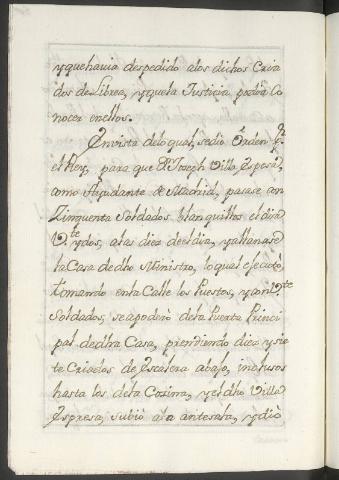 yquehavia despedido alos dichos Cria
dos de Librea, yque la Justicia podia Co
nocer enellos.
Envista delo qual, sedio Orden p.r
el Rey, para que Dn. Joseph Villa Espesa,
como Ayudante de Madrid, pasase con
Zinquenta Soldados blanquillos el dia
V.te ydos, alas diez de el dia, yallanase
la Casa de dho Ministro, lo qual executó,
tomando en la Calle los Puestos, y con V.te
Soldados, se apoderó de la Puerta Princi
pal de dha Casa, prendiendo diez y sie
te Criados de Escalera abajo, inclusos
hasta los de la Cosina, y el dho Villa
Espesa, subió ala antesala, y dió